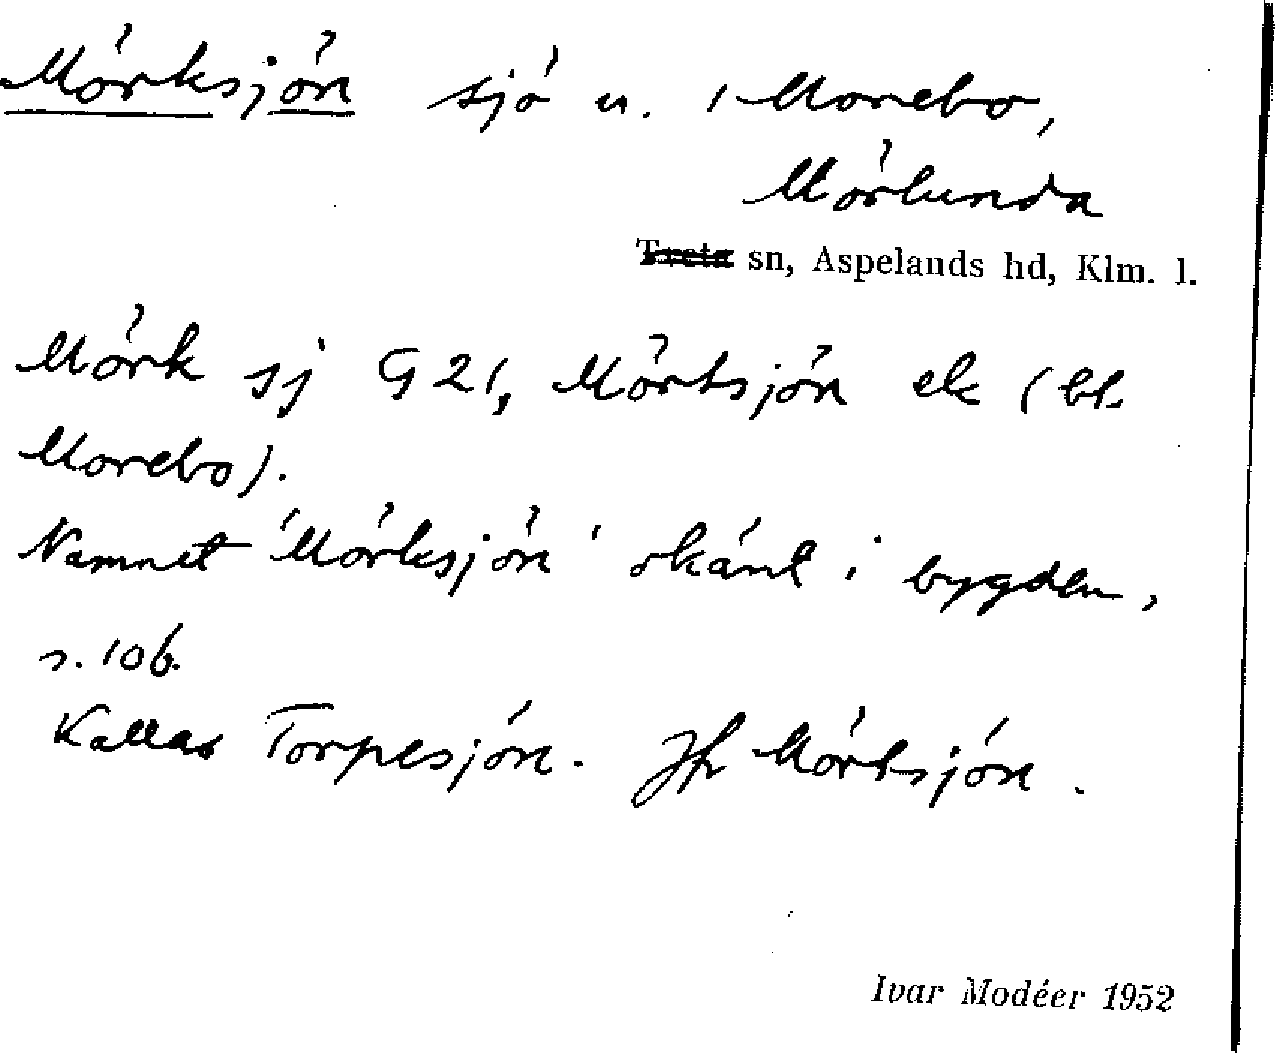 Mörksjön sjö u. Morebo,
Mörlunda
Tveta sn, Aspelands hd, Klm. l.
Mörk sj G 21, Mörtsjön ek (bl.
Morebo).
Namnet 'Mörksjön' okänt i bygden,
s. 106.
Kallas Torpesjön. Jfr Mörtsjön.
Ivar Modéer 1952